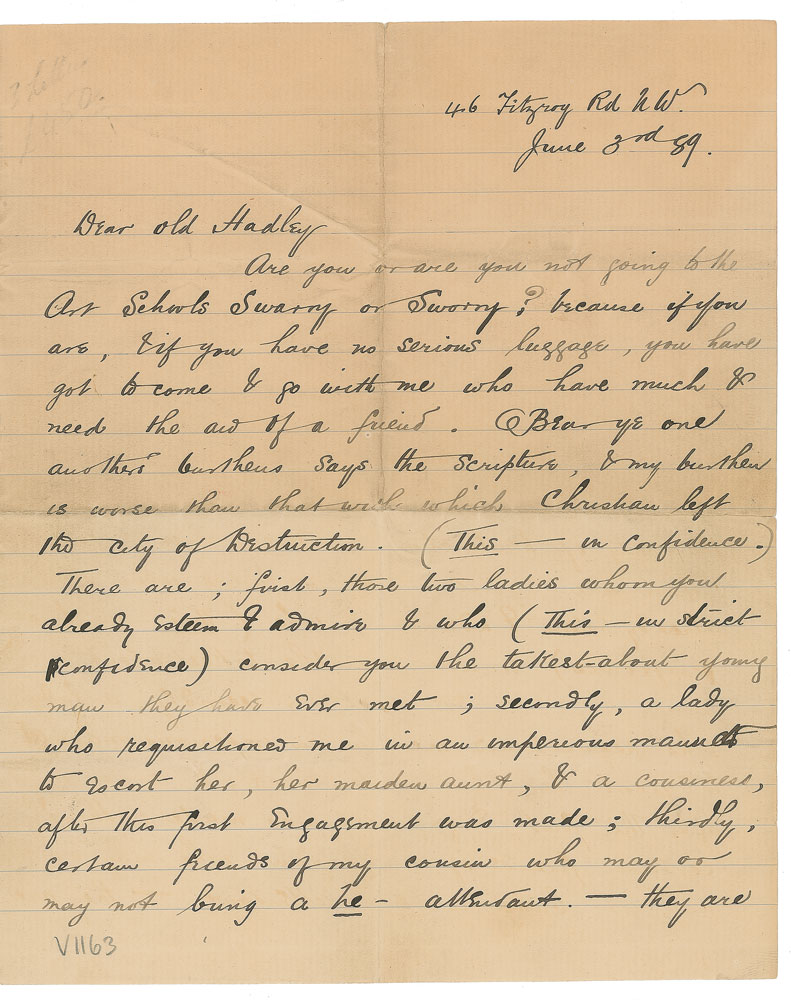 46 Fitzroy Rd N W.
June 3rd 89.
Dear old Hadley
Are you or are you not going to the
Art Schools Swarry or Sworry ? because if you
are, & if you have no serious luggage, you have
got to come & go with me who have much &
need the aid of a friend. Bear ye one
anothers burthens says the Scripture, & my burthen
is worse than that with which Christian left
the city of Destruction. (This — in confidence.)
There are ; first, those two ladies whom you
already esteem & admire & who (This — in strict
confidence) consider you the takest-about young
man they have ever met ; secondly, a lady
who requisitioned me in an imperious manner
to escort her, her maiden aunt, & a cousiness,
after this first Engagement was made ; thirdly,
certain friends of my cousin who may or
may not bring a he - attendant. — they are
V1163